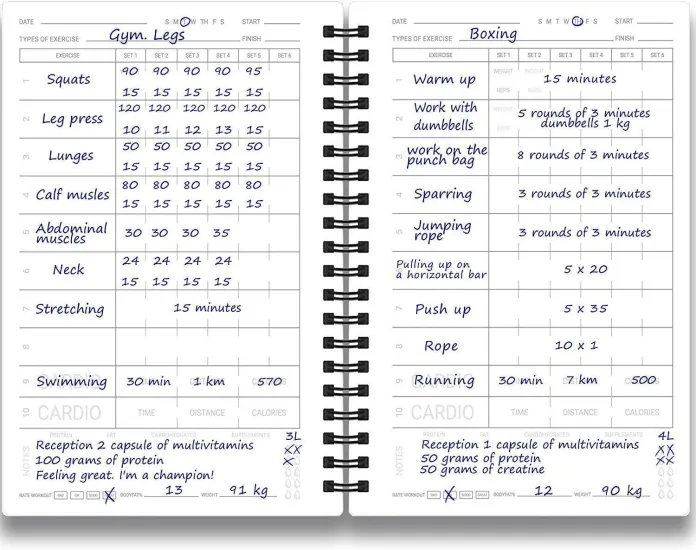 DATE S M T W TH F S START
TYPES OF EXERCISE Gym. Legs FINISH
EXERCISE SET 1 SET 2 SET 3 SET 4 SET 5 SET 6
1 Squats 90 90 90 90 95
15 15 15 15 15
2 Leg press 120 120 120 120 120
10 11 12 13 15
3 Lunges 50 50 50 50 50
15 15 15 15 15
4 Calf musles 80 80 80 80 80
15 15 15 15 15
5 Abdominal
muscles 30 30 30 35
6 Neck 24 24 24 24
15 15 15 15
7 Stretching 15 minutes
8
9 Swimming 30 min 1 km 570
10 CARDIO TIME DISTANCE CALORIES
PROTEIN FAT CARBOHYDRATES SUPPLEMENTS 3L
NOTES
Reception 2 capsule of multivitamins XX
100 grams of protein X
Feeling great. I'm a champion!
RATE WORKOUT BAD OK GOOD X BODYFAT% 13 WEIGHT 91 kg
DATE S M T W TH F S START
TYPES OF EXERCISE Boxing FINISH
EXERCISE SET 1 SET 2 SET 3 SET 4 SET 5 SET 6
1 Warm up WEIGHT WEIGHT 15 minutes
REPS REPS
2 Work with
dumbbells 5 rounds of 3 minutes
dumbbells 1 kg
3 work on the
punch bag 8 rounds of 3 minutes
4 Sparring 3 rounds of 3 minutes
5 Jumping
rope 3 rounds of 3 minutes
Pulling up on
a horizontal bar 5 x 20
7 Push up 5 x 35
8 Rope 10 x 1
9 Running 30 min 7 km 500
10 CARDIO TIME DISTANCE CALORIES
PROTEIN FAT CARBOHYDRATES SUPPLEMENTS 4L
NOTES
Reception 1 capsule of multivitamins XX
50 grams of protein XX
50 grams of creatine
RATE WORKOUT BAD X GOOD GREAT BODYFAT% 12 WEIGHT 90 kg